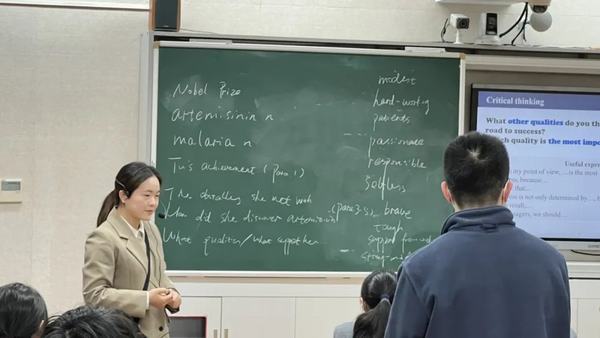 Nobel Prize
artemisinin n
malaria n
Tu's achievement (para 1)
The she met with
did she discover artemisinin (para 3-5)
What qualities / what
modest
hard-working
patients
passionate
responsible
selfless
brave
tough
support from
Critical thinking
What other qualities do you th
road to success?
ch quality is the most impo
Useful expre
my point of view, ... is the most
because...
that...
is not only determined by...,
result,...
agers, we should...